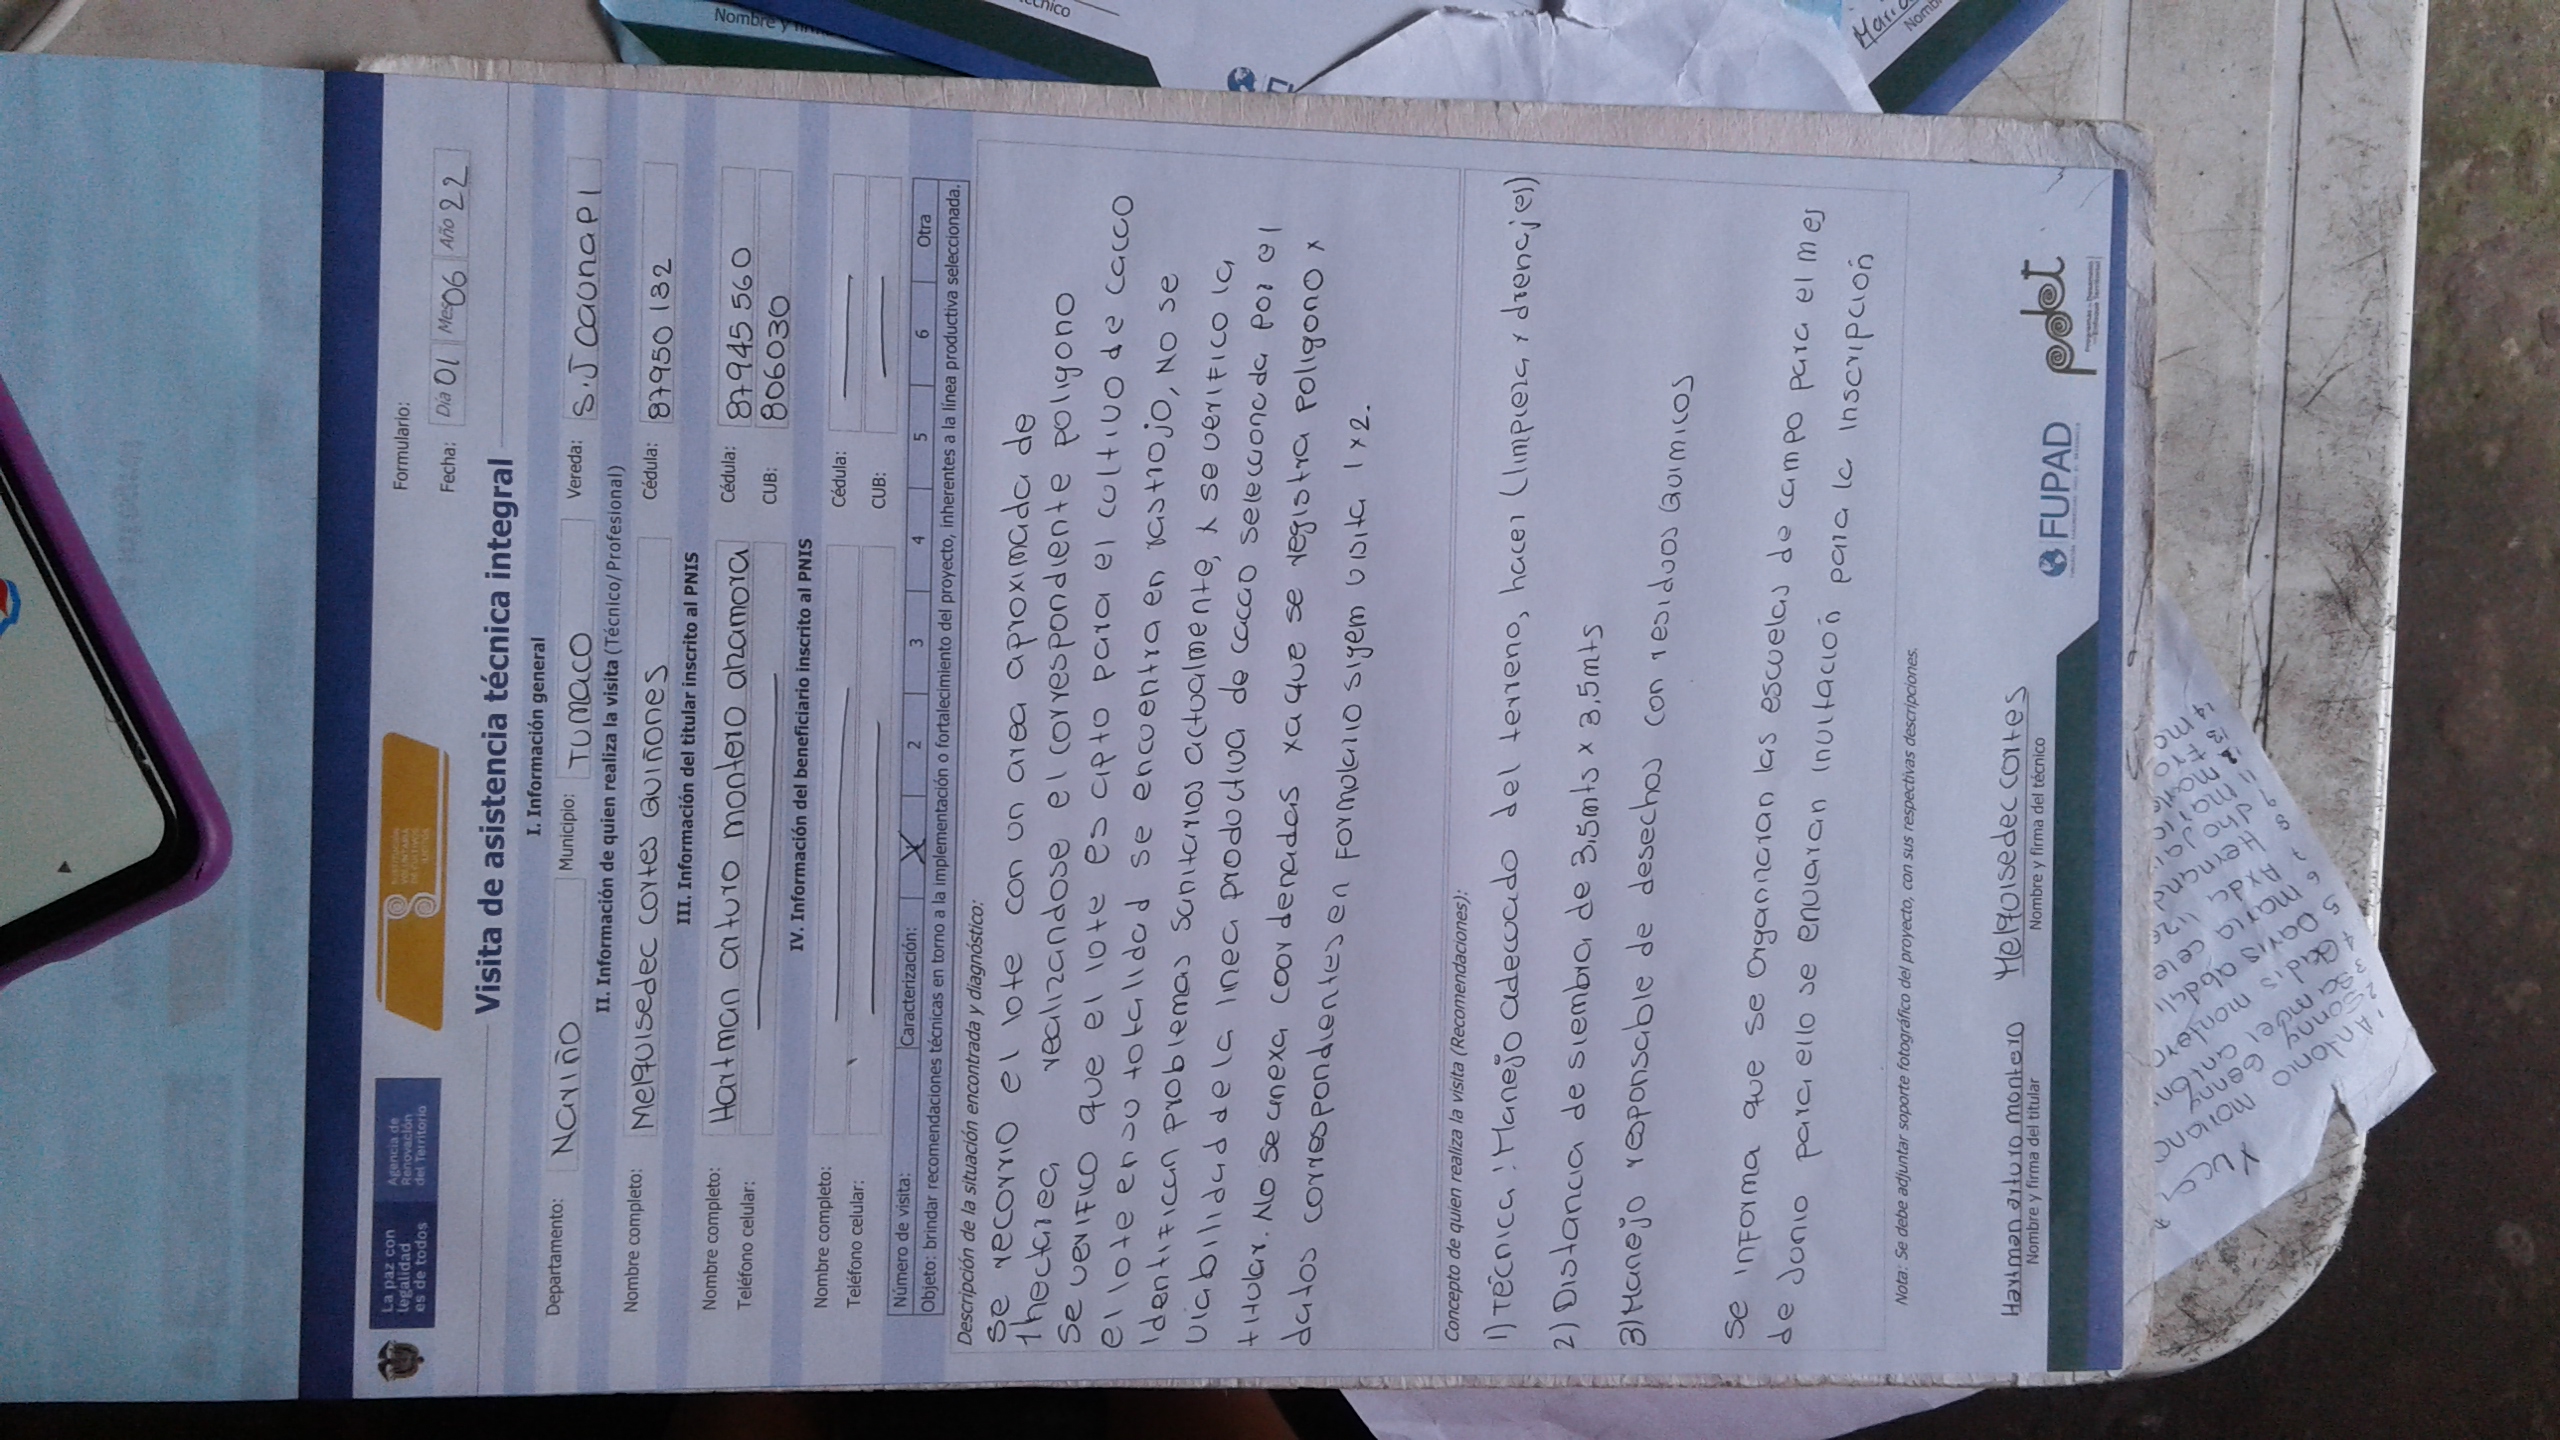 La paz con
legalidad
es de todos
Agencia de
Renovación
del Territorio
Formulario:
Fecha: Día 01 Mes 06 Año 22
Visita de asistencia técnica integral
I. Información general
Departamento: Nariño Municipio: TUMACO Vereda: S.J Caunapi
II. Información de quien realiza la visita (Técnico/Profesional)
Nombre completo: Melquisedec cortes Quiñones Cédula: 87950132
III. Información del titular inscrito al PNIS
Nombre completo: Hartman arturo montero ahamora Cédula: 87945560
Teléfono celular: CUB: 806030
IV. Información del beneficiario inscrito al PNIS
Nombre completo: Cédula:
Teléfono celular: CUB:
Número de visita: Caracterización: X 2 3 4 5 6 Otra
Objeto: brindar recomendaciones técnicas en torno a la implementación o fortalecimiento del proyecto, inherentes a la línea productiva seleccionada.
Descripción de la situación encontrada y diagnóstico:
Se recorrio el lote con un area aproximada de
1hectarea realizandose el correspondiente poligono
Se verifico que el lote es apto para el cultivo de cacco
el lote en su totalidad se encuentra en rastrojo, No se
Identifican problemas sanitarios actualmente, x se verifico la
viabilidad de la linea productiva de cacao seleccionada por el
titular. No se anexa coordenadas xa que se registra poligono x
datos correspondientes en formulario sigem visita 1x2.
Concepto de quien realiza la visita (Recomendaciones):
1) Técnica: Manejo adecuado del terreno, hacer (limpieza x drenajes)
2) Distancia de siembra de 3.5mts x 3.5mts
3) Manejo responsable de desechos con residuos Quimicos
Se informa que se Organizarian las escuelas de campo para el mes
de Junio para ello se enviaran invitación para la inscripción
Nota: Se debe adjuntar soporte fotográfico del proyecto, con sus respectivas descripciones.
Hartman arturo montero Melquisedec cortes
Nombre y firma del titular Nombre y firma del técnico
FUPAD
pdet